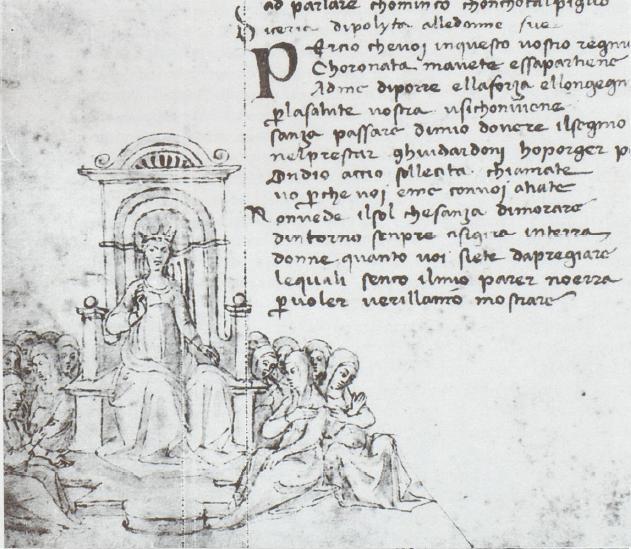 ad parlare chominco chonchotal piglio
dipolyta alledonne fue
Percio chevoi inquesto vostro regno
Choronata mavete essapartiene
Adme diporre ellaforza ellongegn
plasalute vostra usichonviene
sanza passare dimio dovere ilsegno
nelprestar ghuidardoni hoporger p
Ondio accio sollecita chiamate
vo pche voi eme convoi atiate
Nonvede ilsol chesanza dimorare
dintorno senpre cisigira interra
donne quanto voi siete dapregiare
lequali sento ilmio parer noerra
pvoler mostrare